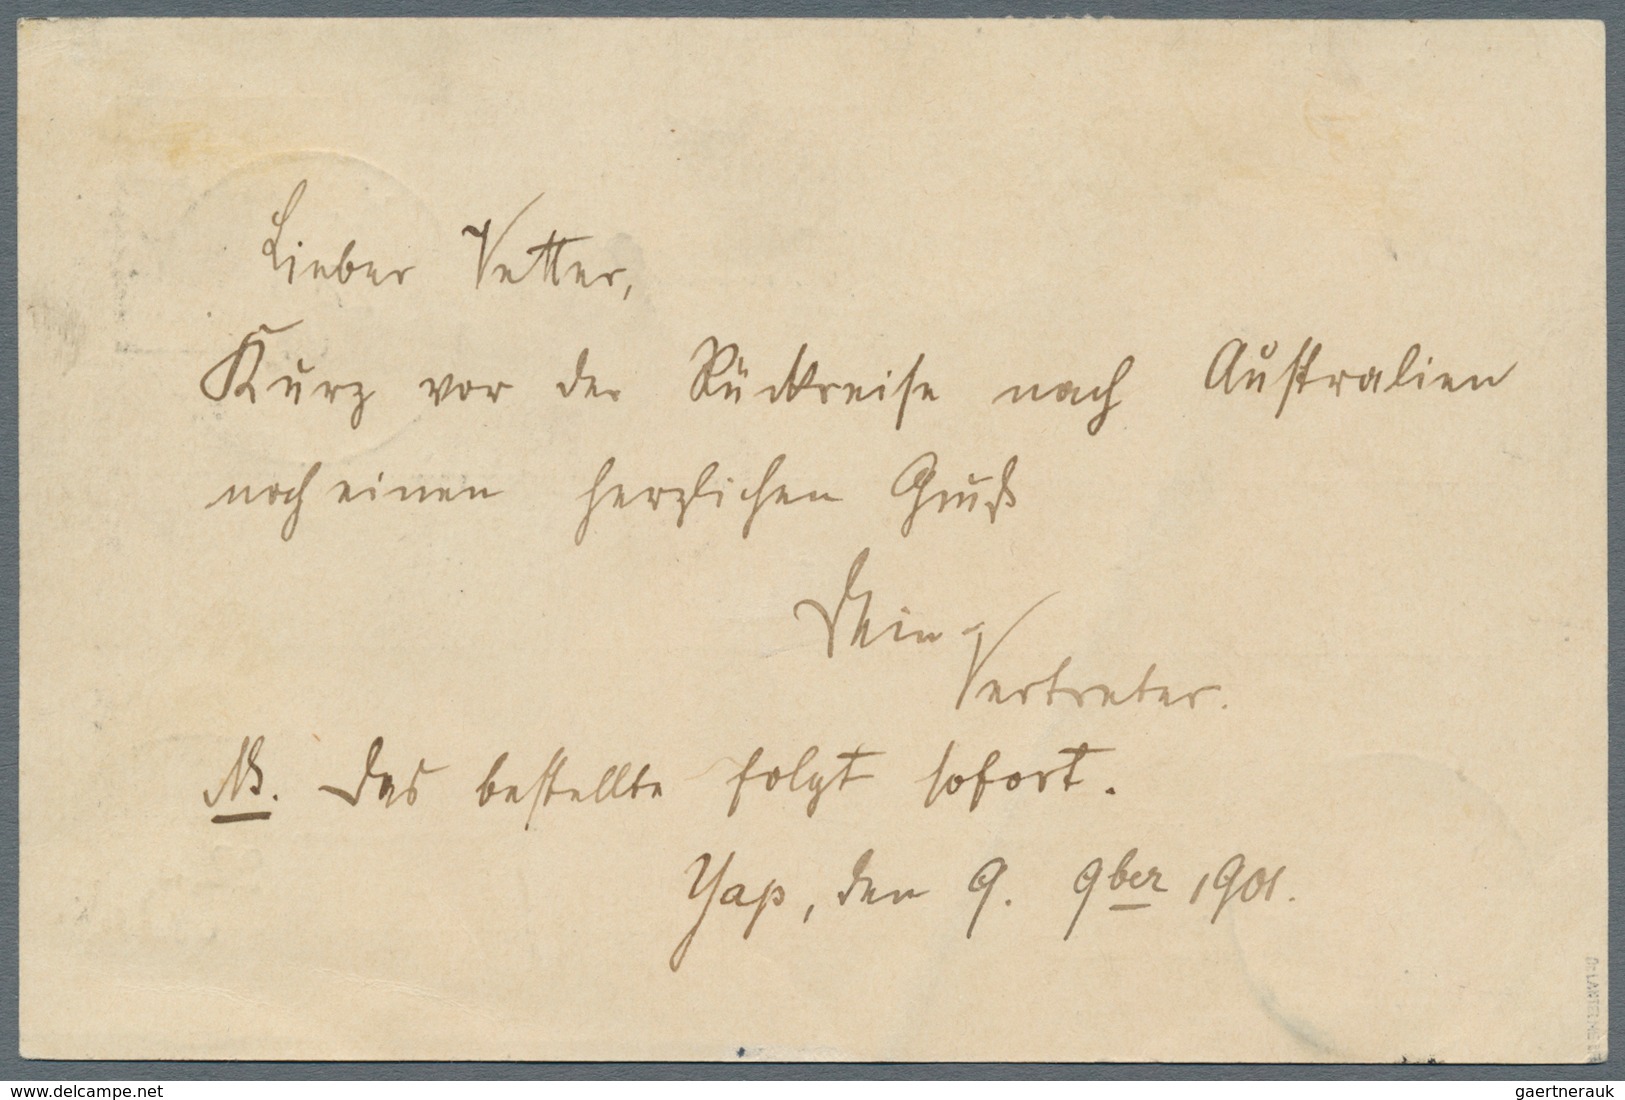 Lieber Vetter,
Kurz vor der Rückreise nach Australien
noch einen herzlichen Gruß
Dein
Vertreter.
NB. Das bestellte folgt sofort.
Yap, den 9. 9ber 1901.
delcampe.net
gaertnerauk